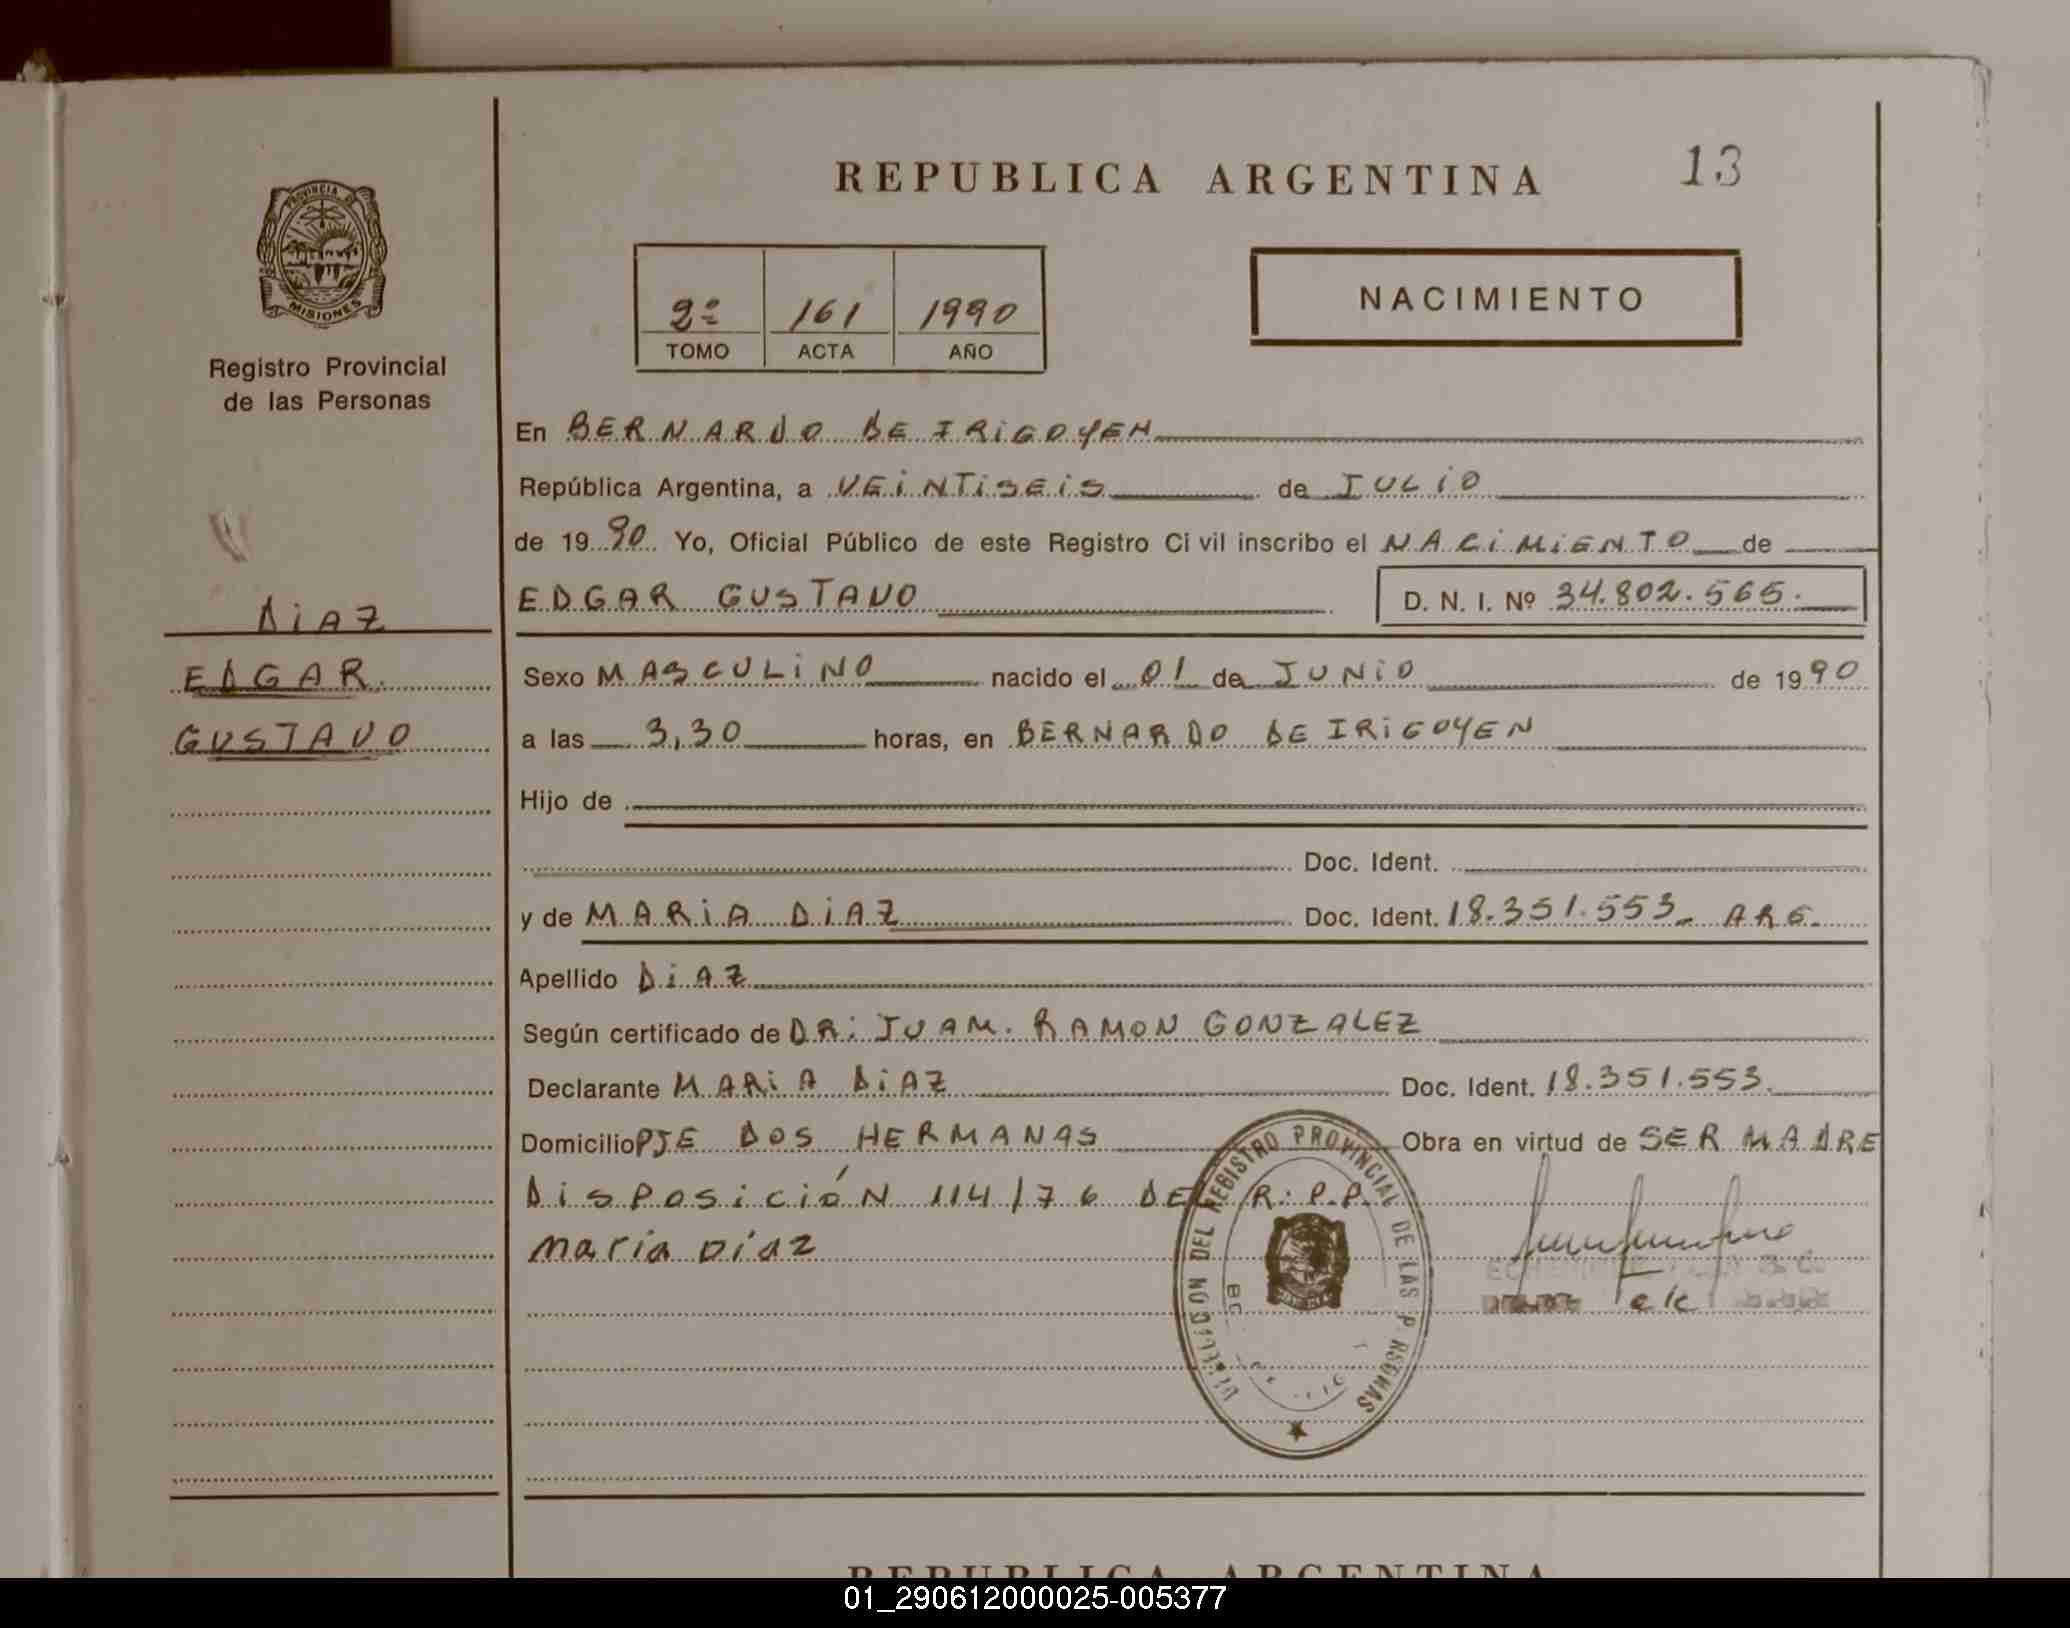 REPUBLICA ARGENTINA 13
PROVINCIA DE
MISIONES
Registro Provincial
de las Personas
2º 161 1990
TOMO ACTA AÑO
NACIMIENTO
En BERNARDO DE IRIGOYEN
República Argentina, a VEINTISEIS de JULIO
de 19 90 Yo, Oficial Público de este Registro Civil inscribo el NACIMIENTO de
EDGAR GUSTAVO D. N. I. Nº 34.802.565.
DIAZ
EDGAR
GUSTAVO
Sexo MASCULINO nacido el 01 de JUNIO de 19 90
a las 3,30 horas, en BERNARDO DE IRIGOYEN
Hijo de
Doc. Ident.
y de MARIA DIAZ Doc. Ident. 18.351.553 ARG.
Apellido DIAZ
Según certificado de DR: JUAM. RAMON GONZALEZ
Declarante MARIA DIAZ Doc. Ident. 18.351.553.
Domicilio PJE DOS HERMANAS Obra en virtud de SER MADRE
DISPOSICIÓN 114/76 DEL R.P.P.
Maria Díaz
DIRECCION DEL REGISTRO PROVINCIAL DE LAS P RSONAS
REPUBLICA ARGENTINA
01_290612000025-005377